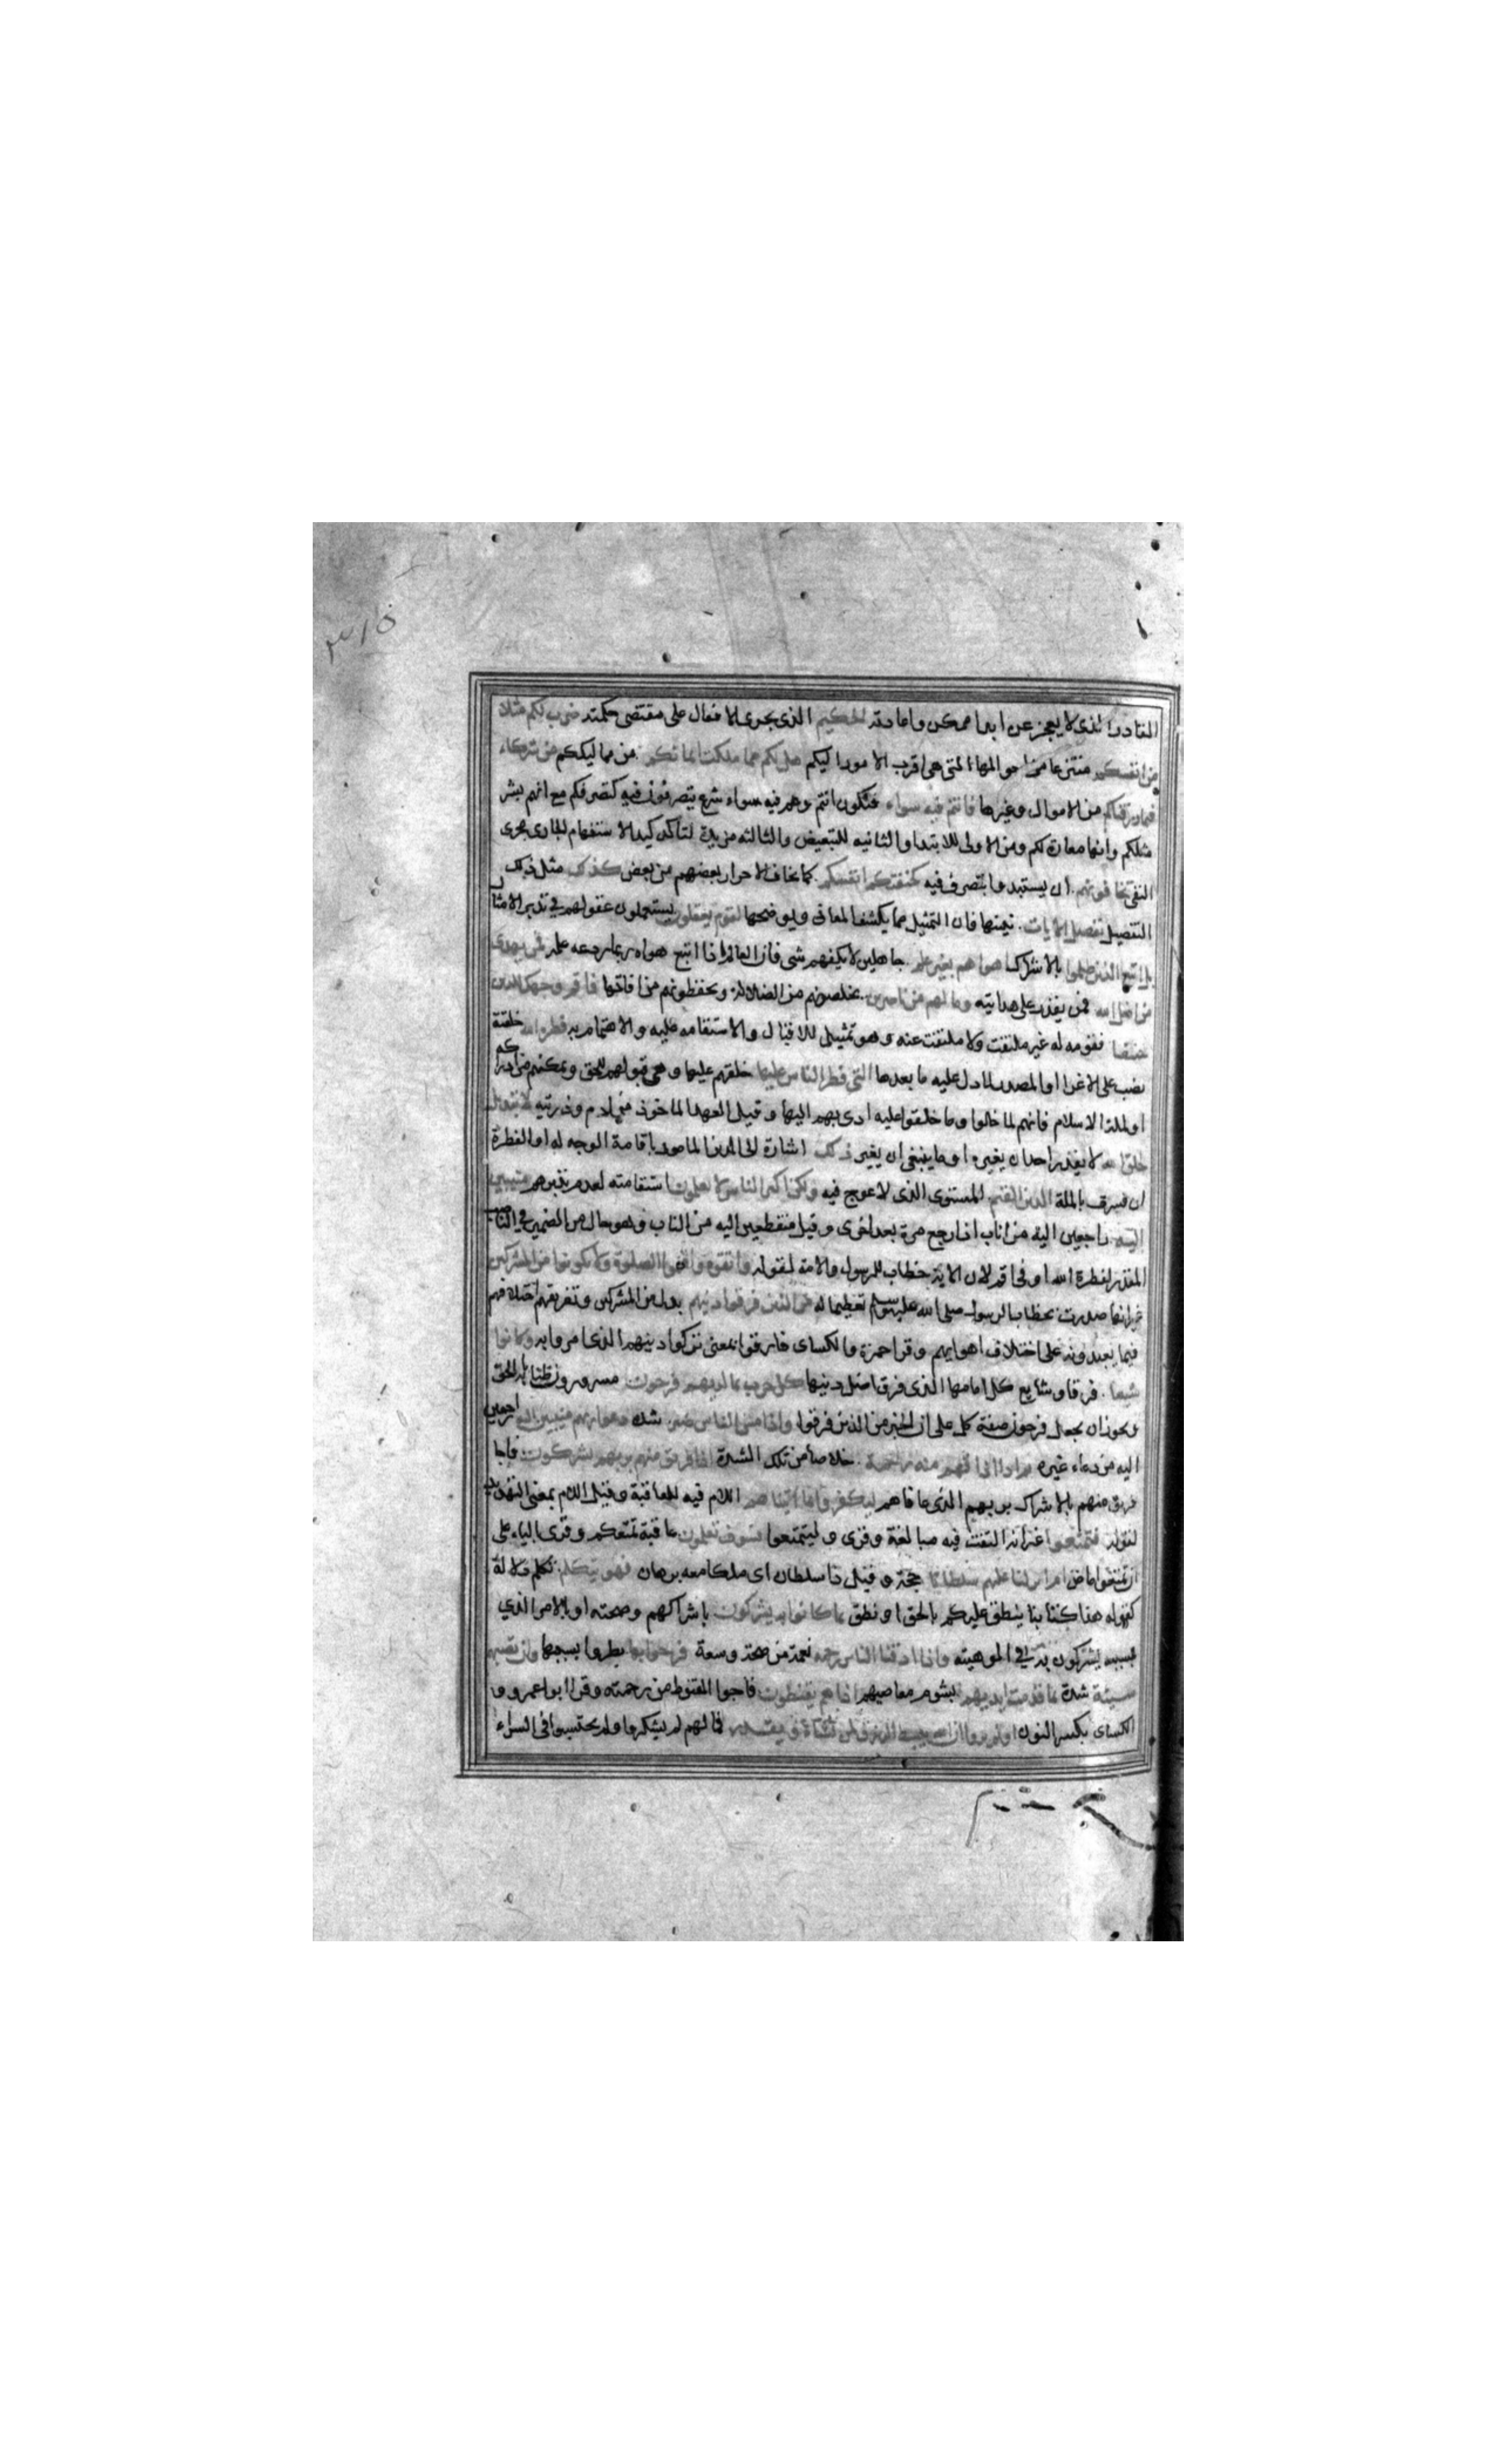 ٣١٥
القادر الذى لا يعجز عن ابدا ممكن واعادته الحكيم الذى يجرى الافعال على مقتضى حكمته ضرب لكم مثلا
من انفسكم منتزعا من احوالها التى هى اقرب الامور اليكم هل لكم مما ملكت ايمانكم من مماليككم من شركاء
فيما رزقناكم من الاموال وغيرها فانتم فيه سواء فتكون انتم وهم فيه سواء شرع يتصرفون فيه كتصرفكم مع انهم بشر
مثلكم وانها معارة لكم ومن الاولى للابتداء والثانيه للتبعيض والثالثه مزيدة لتاكيد الاستفهام الجارى مجرى
النفى تخافونهم ان يستبدوا بتصرف فيه كخيفتكم انفسكم كما يخاف الاحرار بعضهم من بعض كذلك مثل ذلك
التفصيل نفصل الايات نبينها فان التمثيل مما يكشف المعانى ويوضحها لقوم يعقلون يستعملون عقولهم فى تدبر الامثال
بل اتبع الذين ظلموا بالاشراك اهواءهم بغير علم جاهلين لا يكفهم شى فان العالم اذا اتبع هواه ربما ردعه علمه فمن يهدى
من اضل الله فمن يقدر على هدايته وما لهم من ناصرين يخلصونهم من الضلالة ويحفظونهم من افاتها فاقم وجهك للدين
حنيفا فقومه له غير ملتفت ولا ملتفت عنه وهو تمثيل للاقبال والاستقامه عليه والاهتمام به فطرة الله خلقته
نصب على الاغرا او المصدر لما دل عليه ما بعدها التى فطر الناس عليها خلقهم عليها وهى قبولهم للحق وتمكنهم من ادراكه
او ملة الاسلام فانهم لما خلوا وما خلقوا عليه ادى بهم اليها وقيل العهد الماخوذ من ادم وذريته لا تبديل
لخلق الله لا يقدر احد ان يغيره او ما ينبغى ان يغير ذلك اشارة الى الدين المامور باقامة الوجه له او الفطرة
ان فسرت بالملة الدين القيم المستوى الذى لا عوج فيه ولكن اكثر الناس لا يعلمون استقامته لعدم تدبرهم منيبين
اليه راجعين اليه من اناب اذا رجع مرة بعد اخرى وقيل منقطعين اليه من الناب وهو حال من الضمير فى الناصب
المقدر لفطرة الله او فى اقم لان الاية خطاب للرسول والامة لقوله واتقوه واقيموا الصلوة ولا تكونوا من المشركين
غير انها صدرت بخطاب الرسول صلى الله عليه وسلم تعظيما له من الذين فرقوا دينهم بدل من المشركين وتفريقهم اختلافهم
فيما يعبدونه على اختلاف اهوايهم وقرا حمزة والكساى فارقوا بمعنى تركوا دينهم الذى امروا به وكانوا
شيعا فرقا وشايع كل امامها الذى فرق اصل دينها كل حزب بما لديهم فرحون مسرورون ظنا بانه الحق
ويجوز ان يجعل فرحون صفة كل على ان الخبر من الذين فرقوا واذا مس الناس ضر شدة دعوا ربهم منيبين اليه راجعين
اليه من دعاء غيره ثم اذا اذاقهم منه رحمة خلاصا من تلك الشدة اذا فريق منهم بربهم يشركون فاجا
فريق منهم بالاشراك بربهم الذى عافاهم ليكفروا بما اتيناهم اللام فيه للعاقبة وقيل اللام بمعنى التهديد
لقوله فتمتعوا غير انه التفت فيه مبالغة وقرى وليتمتعوا فسوف تعلمون عاقبة تمتعكم وقرى بالياء على
ان تمتعوا ماض ام انزلنا عليهم سلطانا حجة وقيل ذا سلطان اى ملكا معه برهان فهو يتكلم تكلم دلالة
كقوله هذا كتابنا ينطق عليكم بالحق او نطق بما كانوا به يشركون باشراكهم وصحته او بالامر الذي
بسببه يشركون به فى الوهيته واذا اذقنا الناس رحمة نعمة من صحة وسعة فرحوا بها بطروا بسببها وان تصبهم
سيئة شدة بما قدمت ايديهم بشوم معاصيهم اذا هم يقنطون فاجوا القنوط من رحمته وقرا ابو عمرو و
الكساى بكسر النون اولم يروا ان الله يبسط الرزق لمن يشاء ويقدر فما لهم لم يشكروا ولم يحتسبوا فى السراء